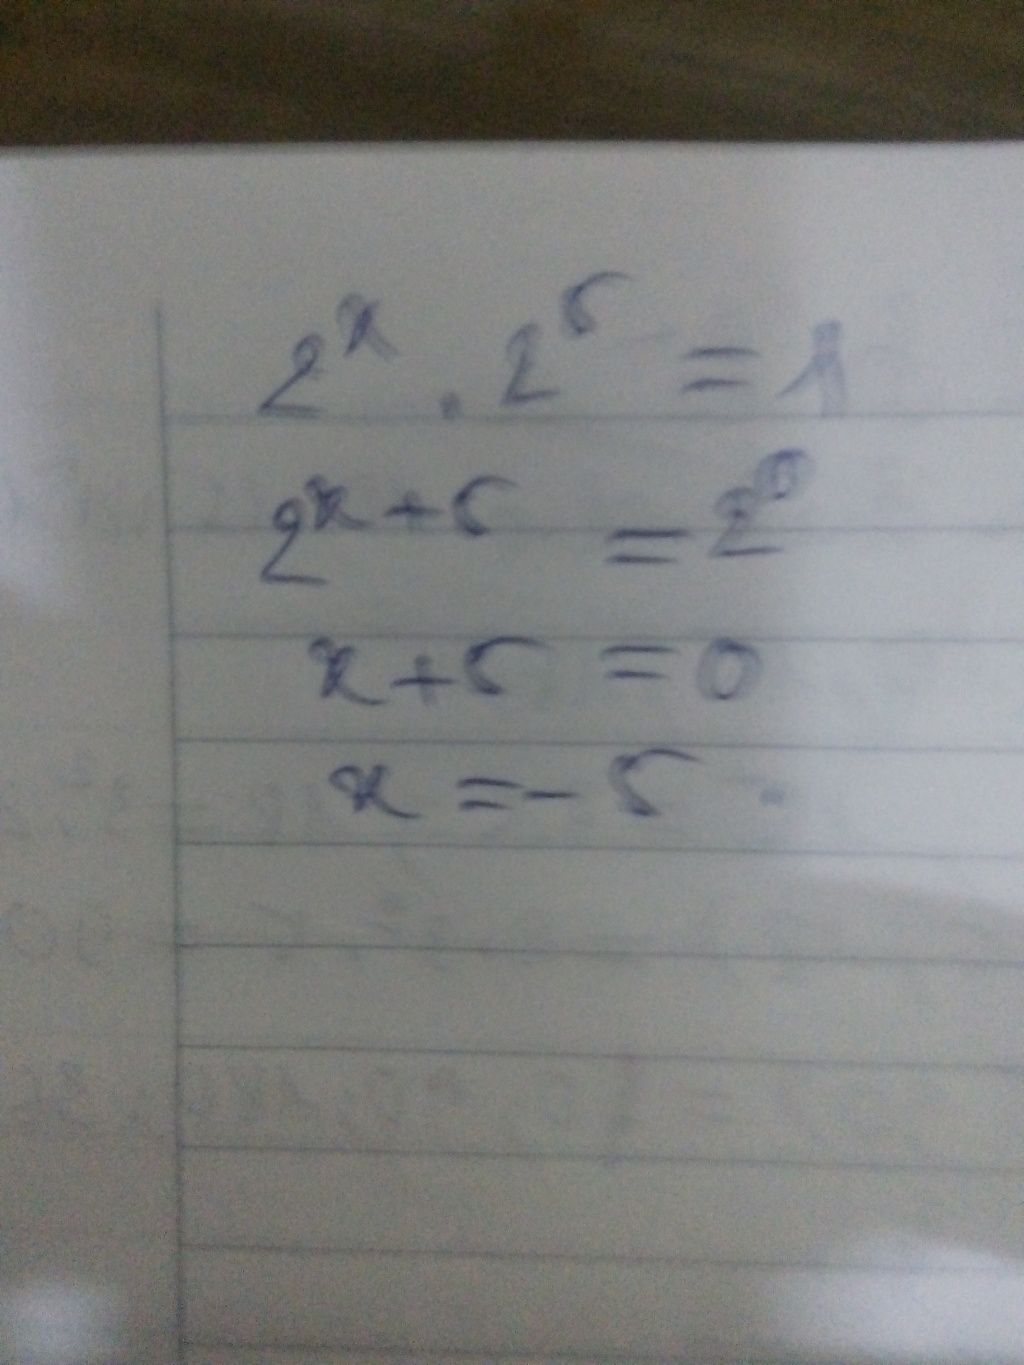 2^x . 2^5 = 1
2^x+5 = 2^0
x+5 = 0
x = -5